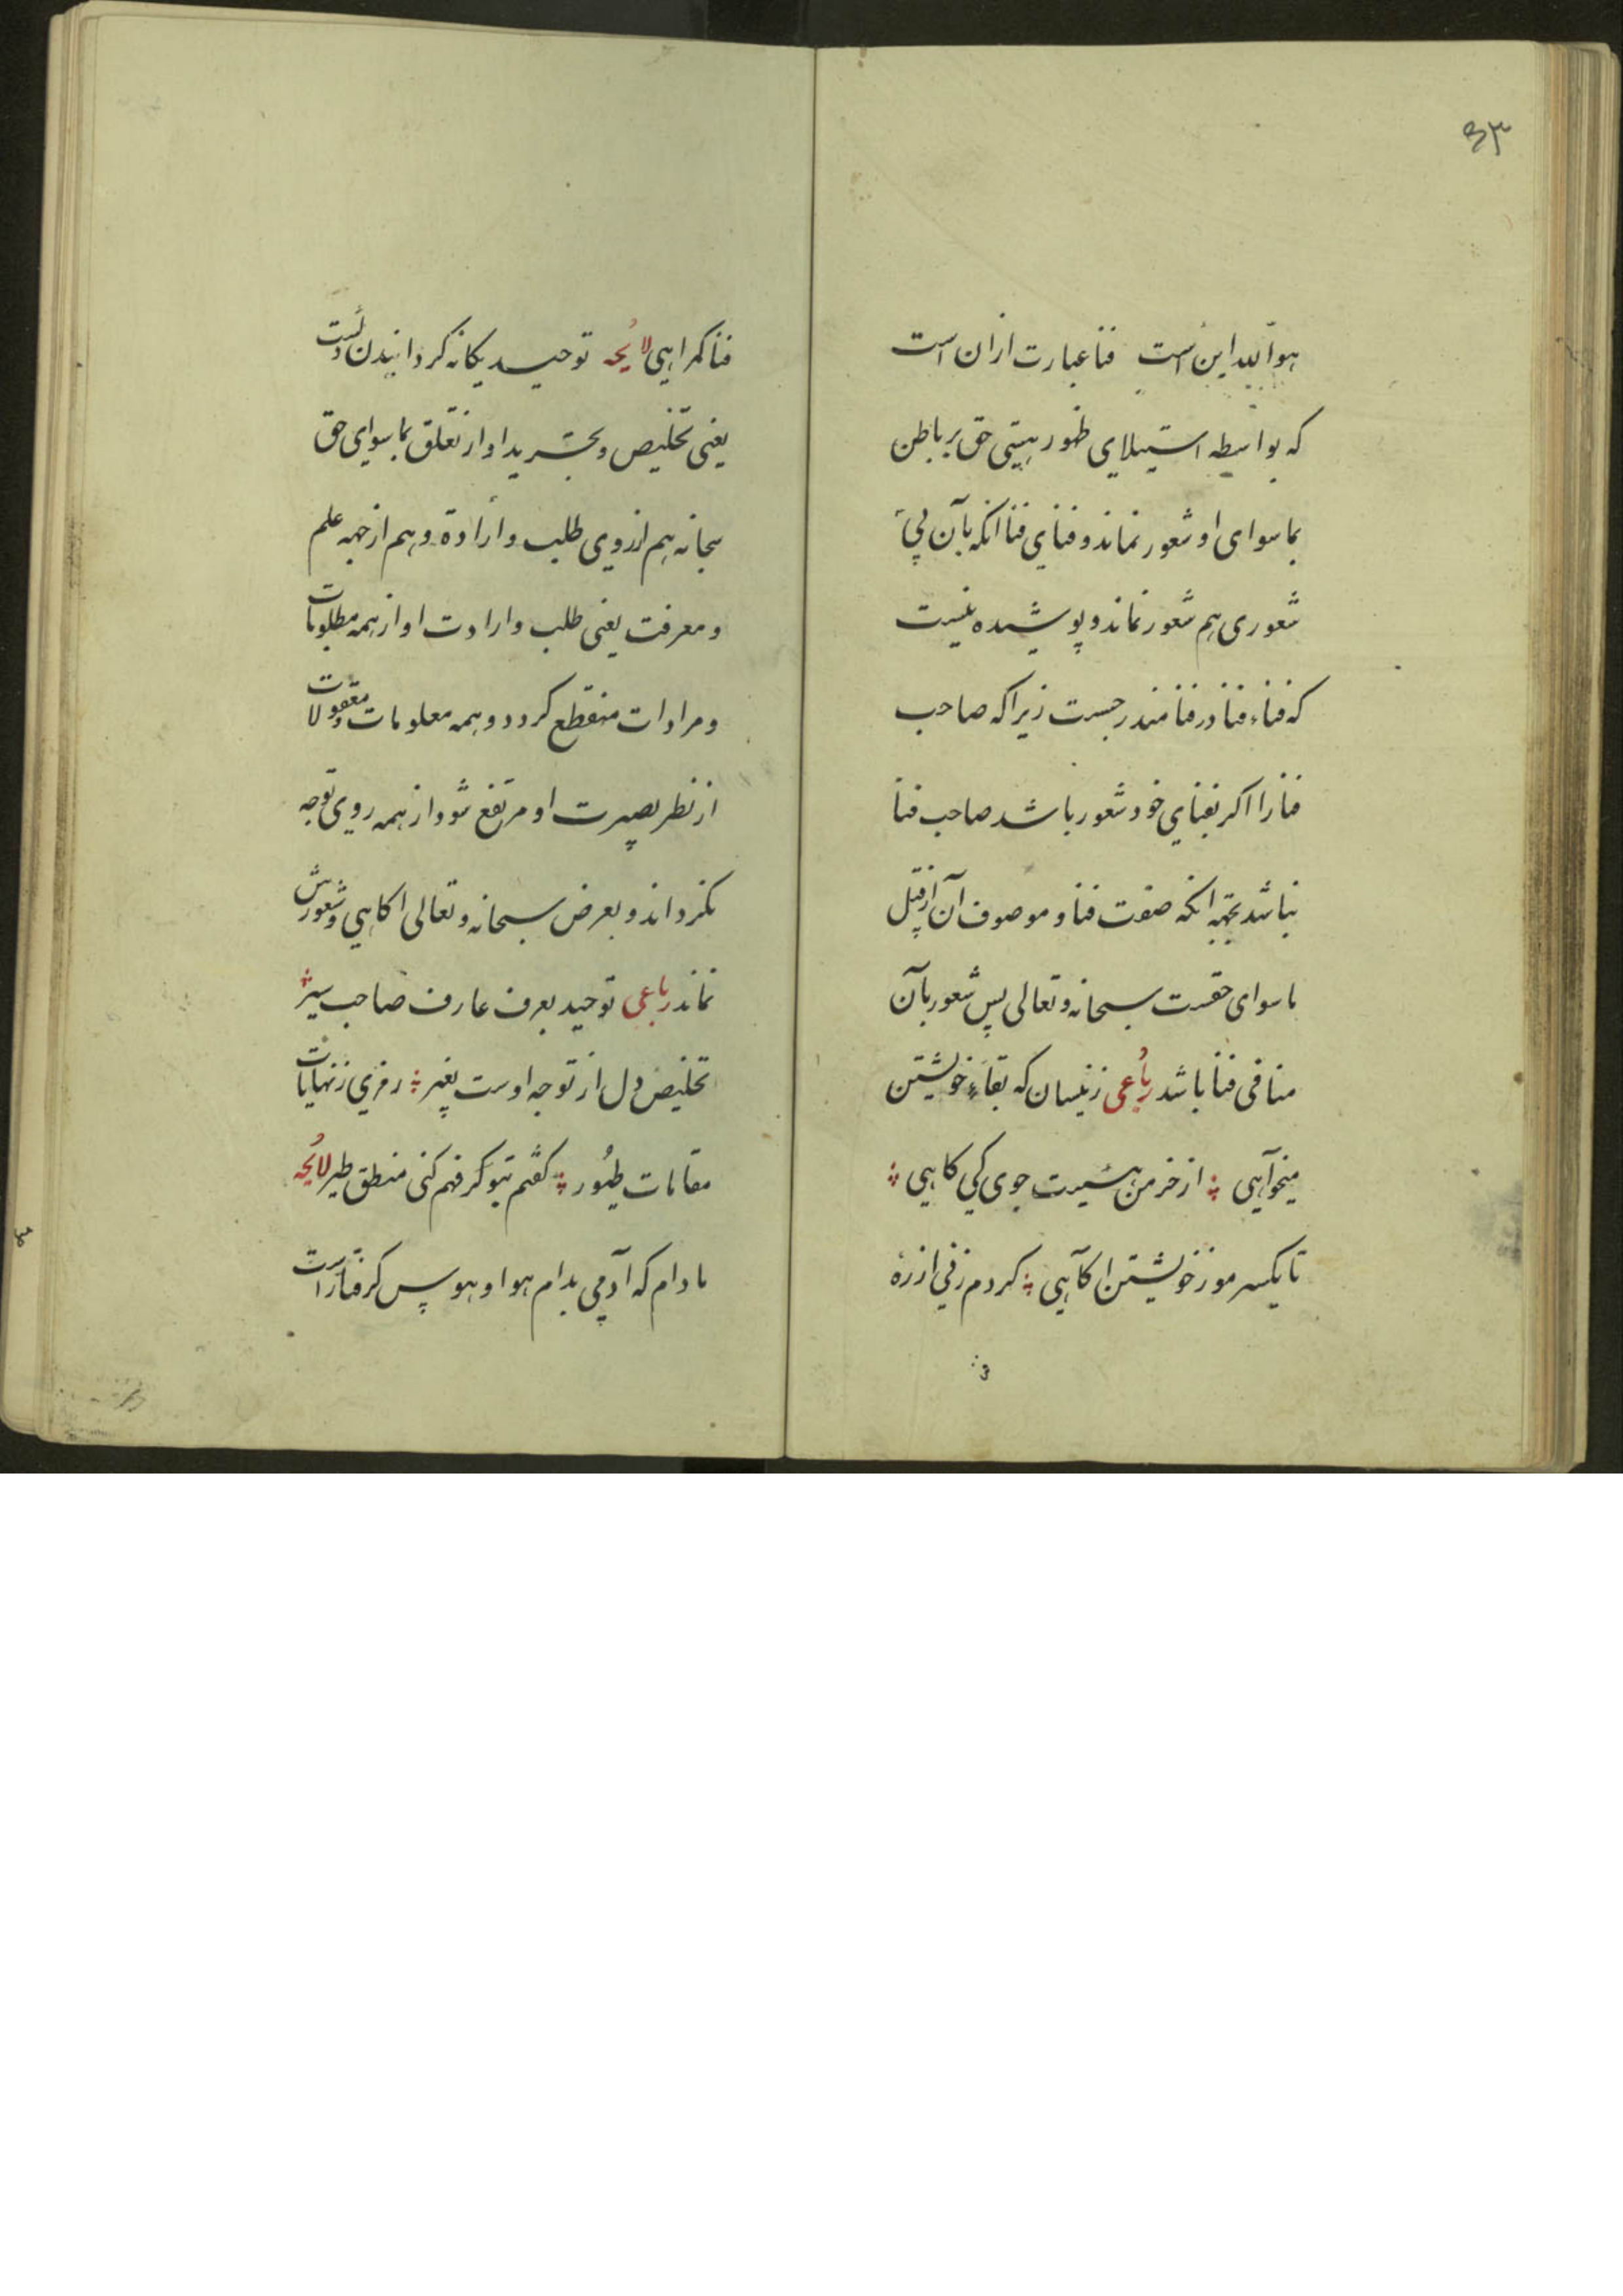 ۳۳
هو الله این است فنا عبارت ازان است
که بواسطه استیلای ظهور هستی حق بر باطن
بماسوای او شعور نماند و فنای فنا انکه بآن بی
شعوری هم شعور نماند و پوشیده نیست
که فناء فنا در فنا مندرجست زیرا که صاحب
فنا را اکر بفنای خود شعور باشد صاحب فنا
نباشد بجهة انکه صفت فنا و موصوف آن از قبیل
ماسوای حقست سبحانه و تعالی پس شعور بآن
منافی فنا باشد رباعی زینسان که بقاء خویشتن
میخواهی از خرمن هستیت جوی کی کاهی
تا یکسر مو ز خویشتن اکاهی کردم زنی از ره
فنا کمراهی لایحه توحید یکانه کردانیدن دلست
یعنی تخلیص و تجرید او از تعلق بماسوای حق
سبحانه هم از روی طلب و ارادة و هم از جهه علم
و معرفت یعنی طلب و ارادت او از همه مطلوبات
و مرادات منقطع کردد و همه معلومات و معقولات
از نظر بصیرت او مرتفع شود از همه روی توجه
بکرداند و بعرض سبحانه و تعالی اکاهی و شعورش
نماند رباعی توحید بعرف عارف صاحب سیر
تخلیص دل از توجه اوست بغیر رمزی ز نهایات
مقامات طیور کفتم بتو کر فهم کنی منطق طیر لایحه
مادام که آدمی بدام هوا و هوس کرفتارست